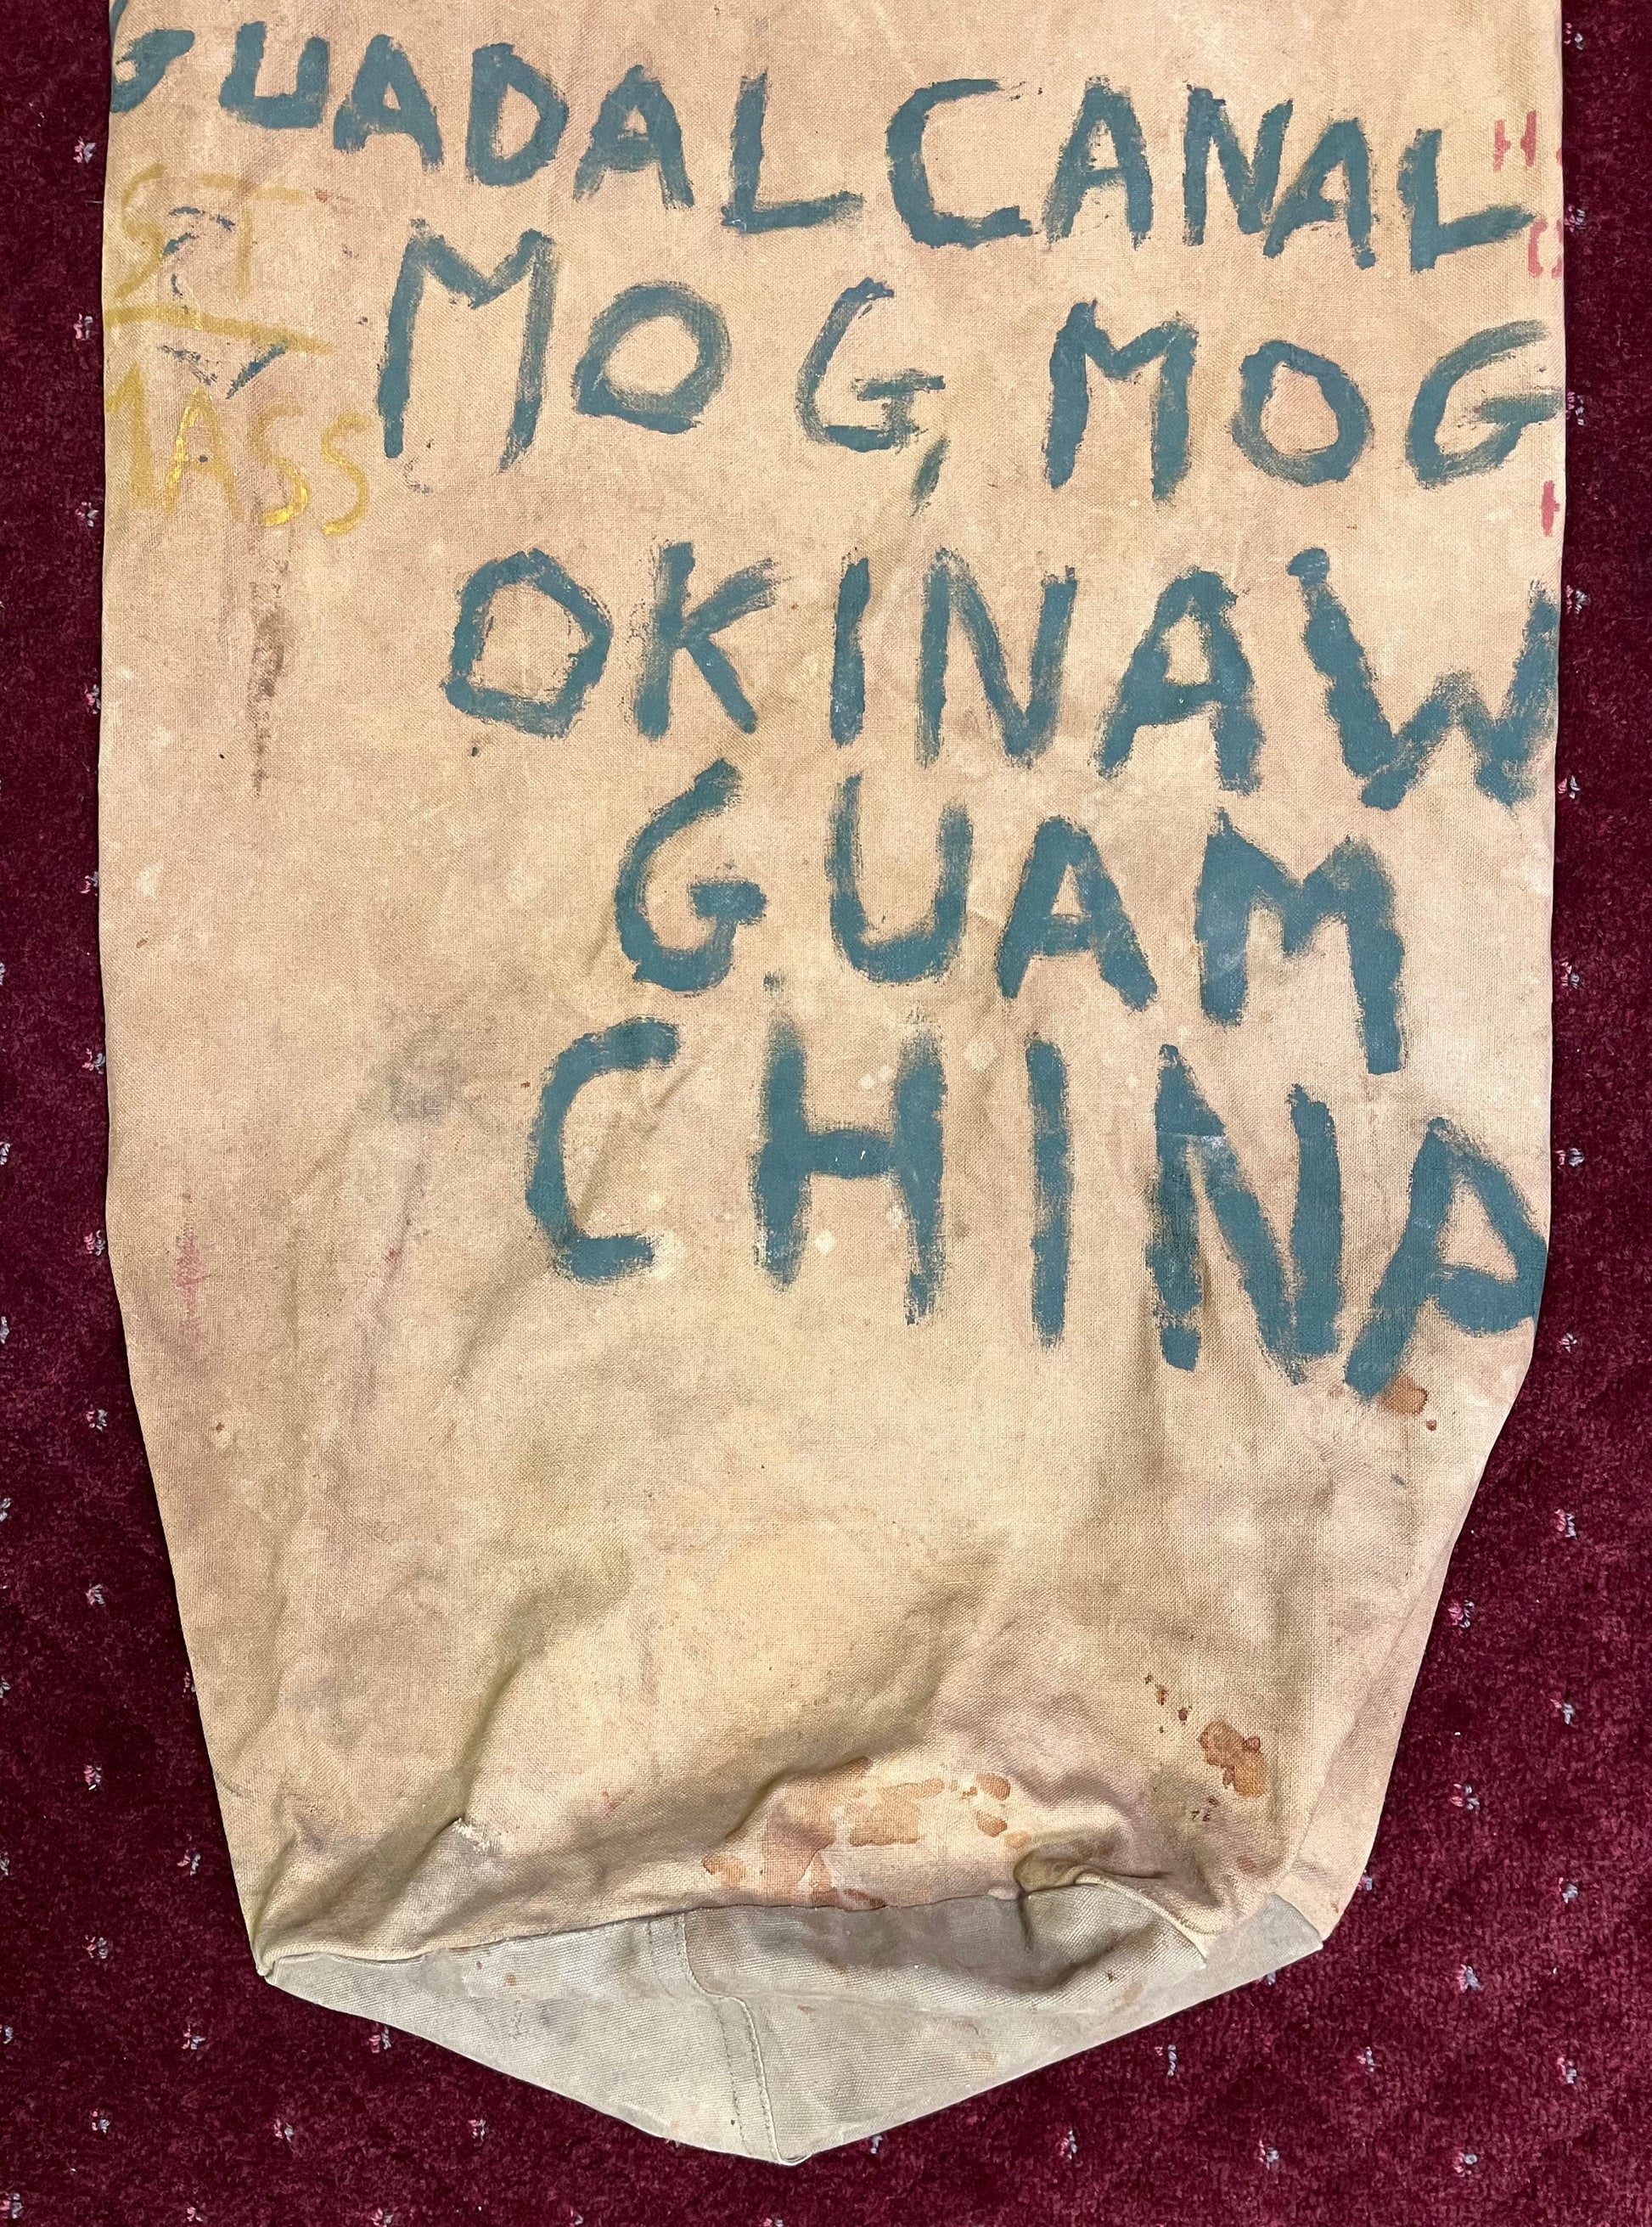 GUADALCANAL
ST
MASS
MOG, MOG
OKINAW
GUAM
CHINA